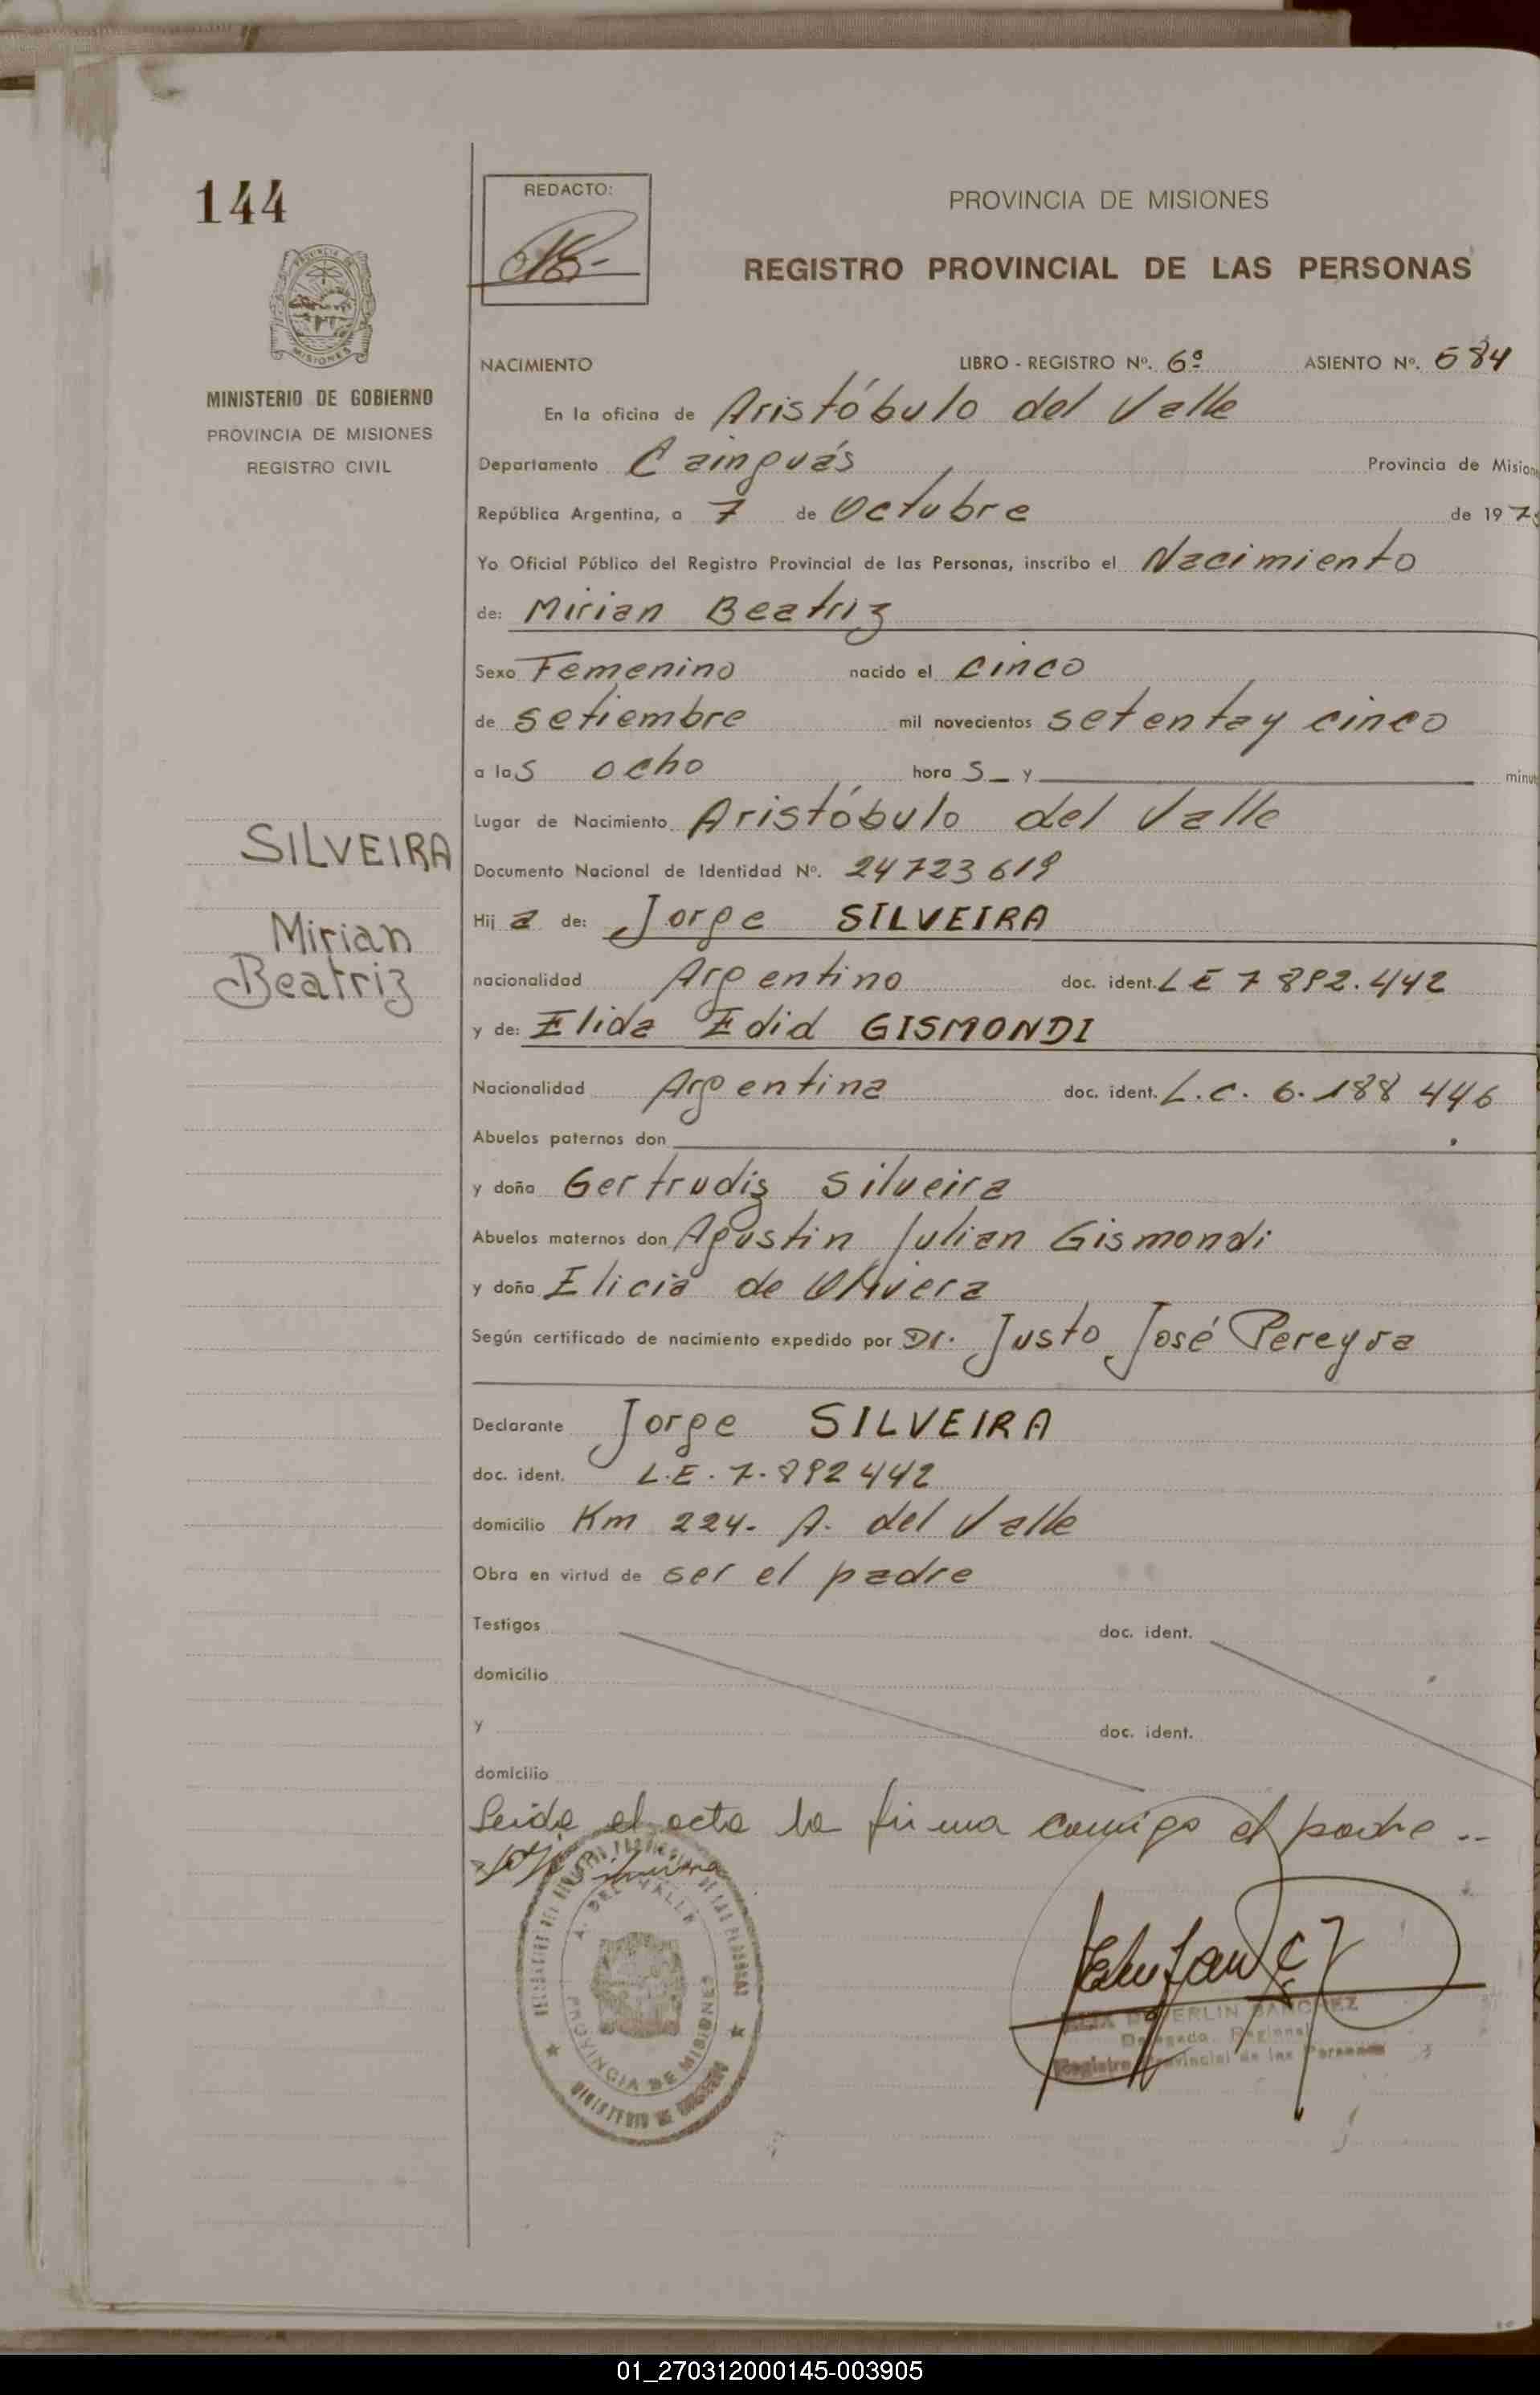 144
REDACTO:
PROVINCIA DE MISIONES
REGISTRO PROVINCIAL DE LAS PERSONAS
PROVINCIA DE
MISIONES
MINISTERIO DE GOBIERNO
PROVINCIA DE MISIONES
REGISTRO CIVIL
NACIMIENTO LIBRO - REGISTRO Nº. 6º ASIENTO Nº. 584
En la oficina de Aristóbulo del Valle
Departamento Cainguás Provincia de Mision
República Argentina, a 7 de Octubre de 197
Yo Oficial Público del Registro Provincial de las Personas, inscribo el Nacimiento
de: Mirian Beatriz
Sexo Femenino nacido el cinco
de setiembre mil novecientos setenta y cinco
a las ocho horas _ y minu
Lugar de Nacimiento Aristóbulo del Valle
SILVEIRA
Mirian
Beatriz
Documento Nacional de Identidad Nº. 24723619
Hija de: Jorge SILVEIRA
nacionalidad Argentino doc. ident. LE 7 892.442
y de: Elida Edid GISMONDI
Nacionalidad Argentina doc. ident. L.C. 6.188 446
Abuelos paternos don
y doña Gertrudiz Silveira
Abuelos maternos don Agustin Julian Gismondi
y doña Elicia de Olivera
Según certificado de nacimiento expedido por Dr. Justo José Pereyra
Declarante Jorge SILVEIRA
doc. ident. L.E. 7.892 442
domicilio Km 224- A. del Valle
Obra en virtud de ser el padre
Testigos doc. ident.
domicilio
y doc. ident.
domicilio
Leida el acta la firma conmigo el padre ..
A. DEL VALLE
PROVINCIA DE MISIONES
SANCHEZ
Delegado Regional
Registro Provincial de las Personas
01_270312000145-003905